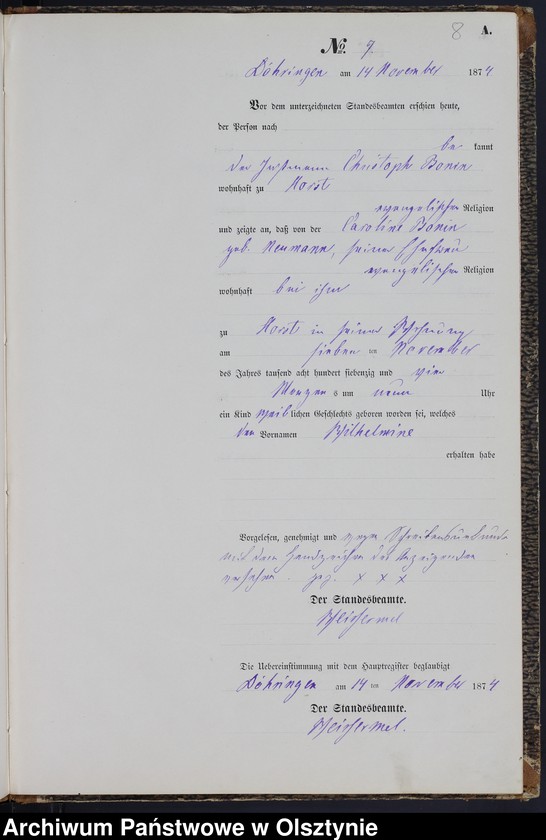 8 A.
No. 9.
Döhringen am 14 November 1874
Vor dem unterzeichneten Standesbeamten erschien heute,
der Person nach
be kannt
der Instmann Christoph Bonin
wohnhaft zu Horst
evangelischer Religion
und zeigte an, daß von der Caroline Bonin
geb. Neumann, seiner Ehefrau
evangelischer Religion
wohnhaft bei ihm
zu Horst in seiner Wohnung
am sieben ten November
des Jahres tausend acht hundert siebenzig und vier
Morgens um neun Uhr
ein Kind weiblichen Geschlechts geboren worden sei, welches
den Vornamen Wilhelmine
erhalten habe
Vorgelesen, genehmigt und wegen Schreibensunkunde
mit dem Handzeichen des Anzeigenden
versehen. gez. x x x
Der Standesbeamte.
Weissermel
Die Uebereinstimmung mit dem Hauptregister beglaubigt
Döhringen am 14 ten November 1874
Der Standesbeamte.
Weissermel.
Archiwum Państwowe w Olsztynie